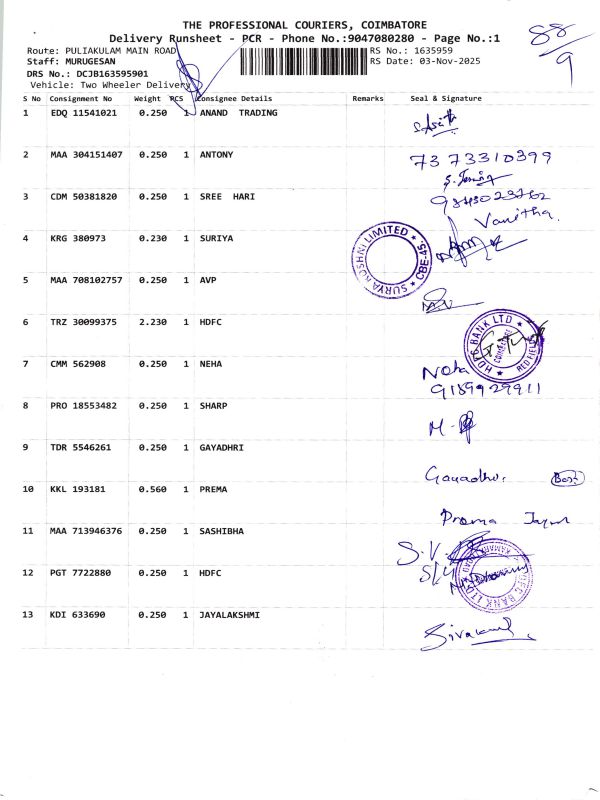 THE PROFESSIONAL COURIERS, COIMBATORE
Delivery Runsheet - PCR - Phone No.:9047080280 - Page No.:1
88/9
Route: PULIAKULAM MAIN ROAD
RS No.: 1635959
Staff: MURUGESAN
RS Date: 03-Nov-2025
DRS No.: DCJB163595901
Vehicle: Two Wheeler Delivery
S No Consignment No Weight PCS Consignee Details Remarks Seal & Signature
1 EDQ 11541021 0.250 1 ANAND TRADING
2 MAA 304151407 0.250 1 ANTONY 7373310399
3 CDM 50381820 0.250 1 SREE HARI 9843023762
Vanitha.
4 KRG 380973 0.230 1 SURIYA
LIMITED CBE-45. SURYA
5 MAA 708102757 0.250 1 AVP
6 TRZ 30099375 2.230 1 HDFC
HDFC BANK LTD COIMBATORE RED FIELDS
7 CMM 562908 0.250 1 NEHA Neha
9189929911
8 PRO 18553482 0.250 1 SHARP M.
9 TDR 5546261 0.250 1 GAYADHRI
Gayadhri
10 KKL 193181 0.560 1 PREMA
Prema
11 MAA 713946376 0.250 1 SASHIBHA
S.V.
12 PGT 7722880 0.250 1 HDFC
HDFC BANK LTD
13 KDI 633690 0.250 1 JAYALAKSHMI
Sivakumar